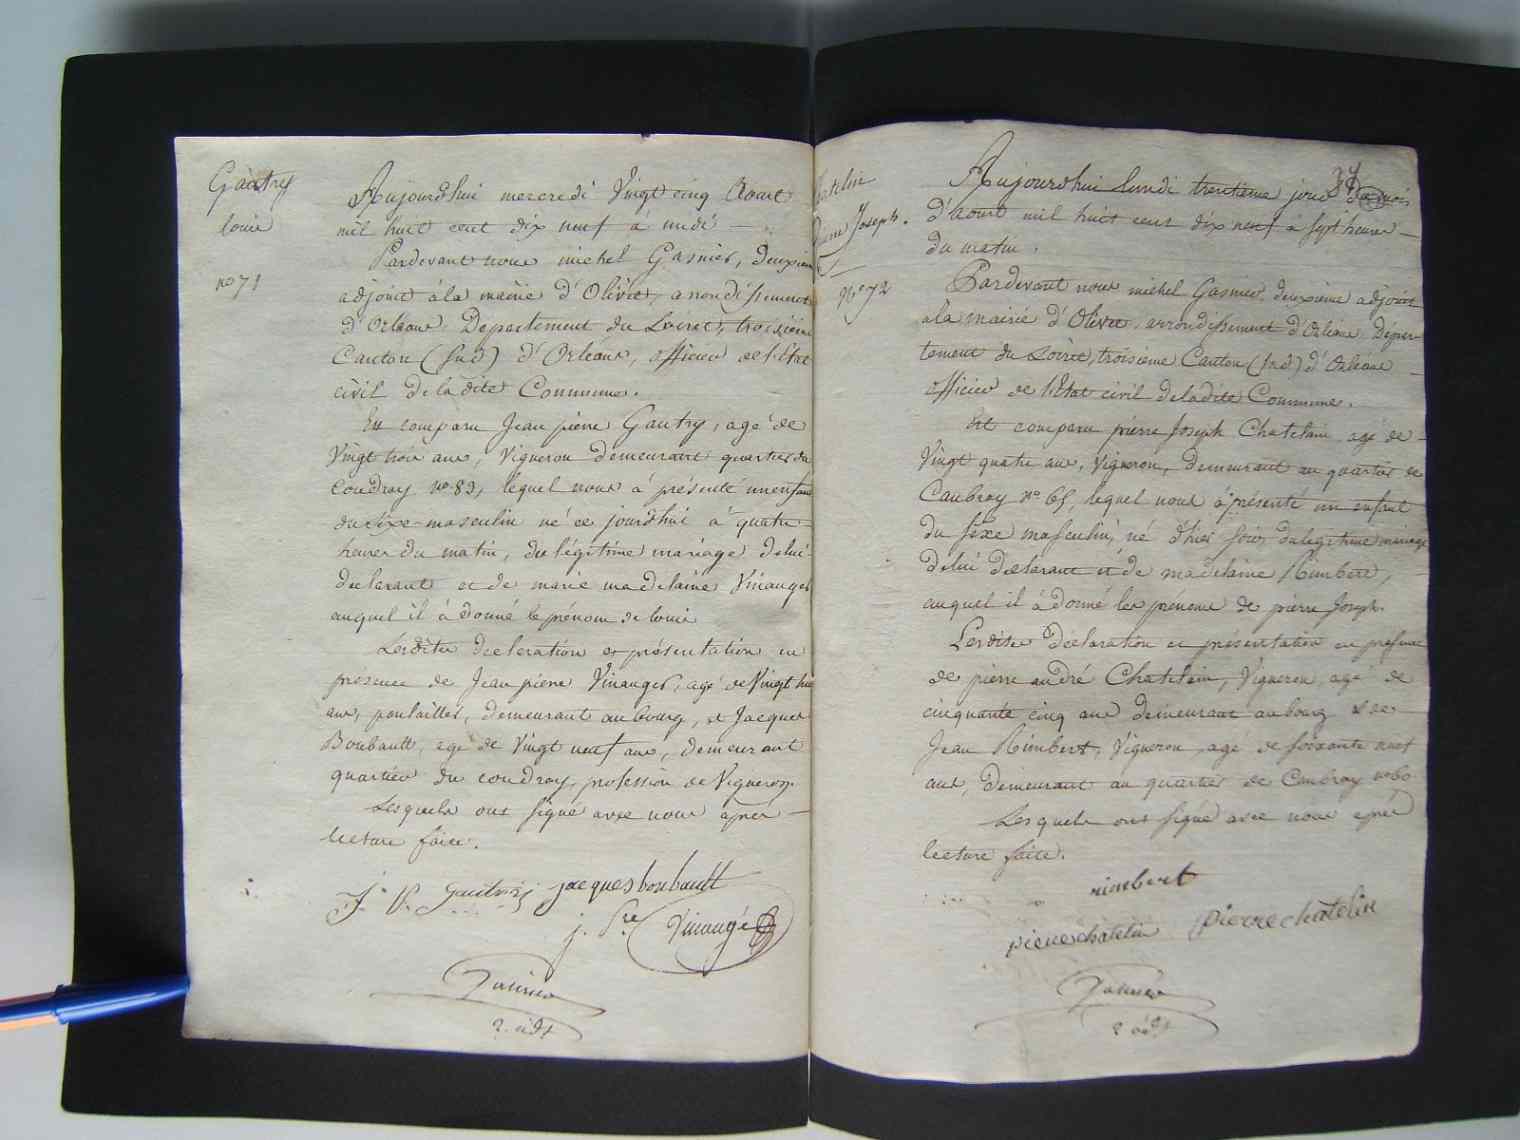 Gautry
louis
no 71
Aujourdhui mercredi Vingt cinq Aout
mil huit cent dix neuf à midi
Pardevant nous michel Gasnier, deuxieme
adjoint à la mairie d'Olivet, arrondissement
d'Orleans Departement du Loiret, troisieme
Canton (sud) d'Orleans, officier de l'Etat
civil de la dite Commune.
Est comparu Jean pierre Gautry, agé de
Vingt trois ans, Vigneron demeurant quartier du
Coudray no 89, lequel nous à présenté un enfant
du sexe masculin né ce jourdhui à quatre
heures du matin, du légitime mariage de lui
declarant et de marie madelaine Vinauger
auquel il à donné le prénom de louis
Lesdites declaration et présentation en
présence de Jean pierre Vinauger, agé de Vingt
ans, poulailler, demeurant au bourg, et Jacques
Boubault, agé de Vingt neuf ans, demeurant
quartier du coudray, profession de Vigneron.
Lesquels ont signé avec nous après
lecture faite.
J. P. Gautry jacques boubault
j. Pre Vinaugé
Gasnier
2. adjt
37
Joseph.
No 72
Aujourdhui lundi trentieme jour du mois
d'aout mil huit cent dix neuf à sept heures
du matin.
Pardevant nous michel Gasnier deuxième adjoint
a la mairie d'Olivet, arrondissement d'Orléans Dépar-
tement du Loiret, troisième Canton (sud) d'Orléans
officier de l'Etat civil de ladite Commune.
Est comparu pierre Joseph Chatelain agé de
Vingt quatre ans, Vigneron, demeurant au quartier de
Caubray no 65, lequel nous à présenté un enfant
du sexe masculin, né d'hier soir, du légitime mariage
de lui déclarant et de madelaine Rimbert,
auquel il à donné les prénoms de pierre Joseph.
Lesdites déclaration et présentation en présence
de pierre andré Chatelain, Vigneron, agé de
cinquante cinq ans demeurant au bourg et de
Jean Rimbert, Vigneron, agé de soixante neuf
ans, demeurant au quartier de Caubray no 60
Lesquels ont signé avec nous après
lecture faite.
rimbert
pierre chatelin pierre chatelin
Gasnier
2 adjt